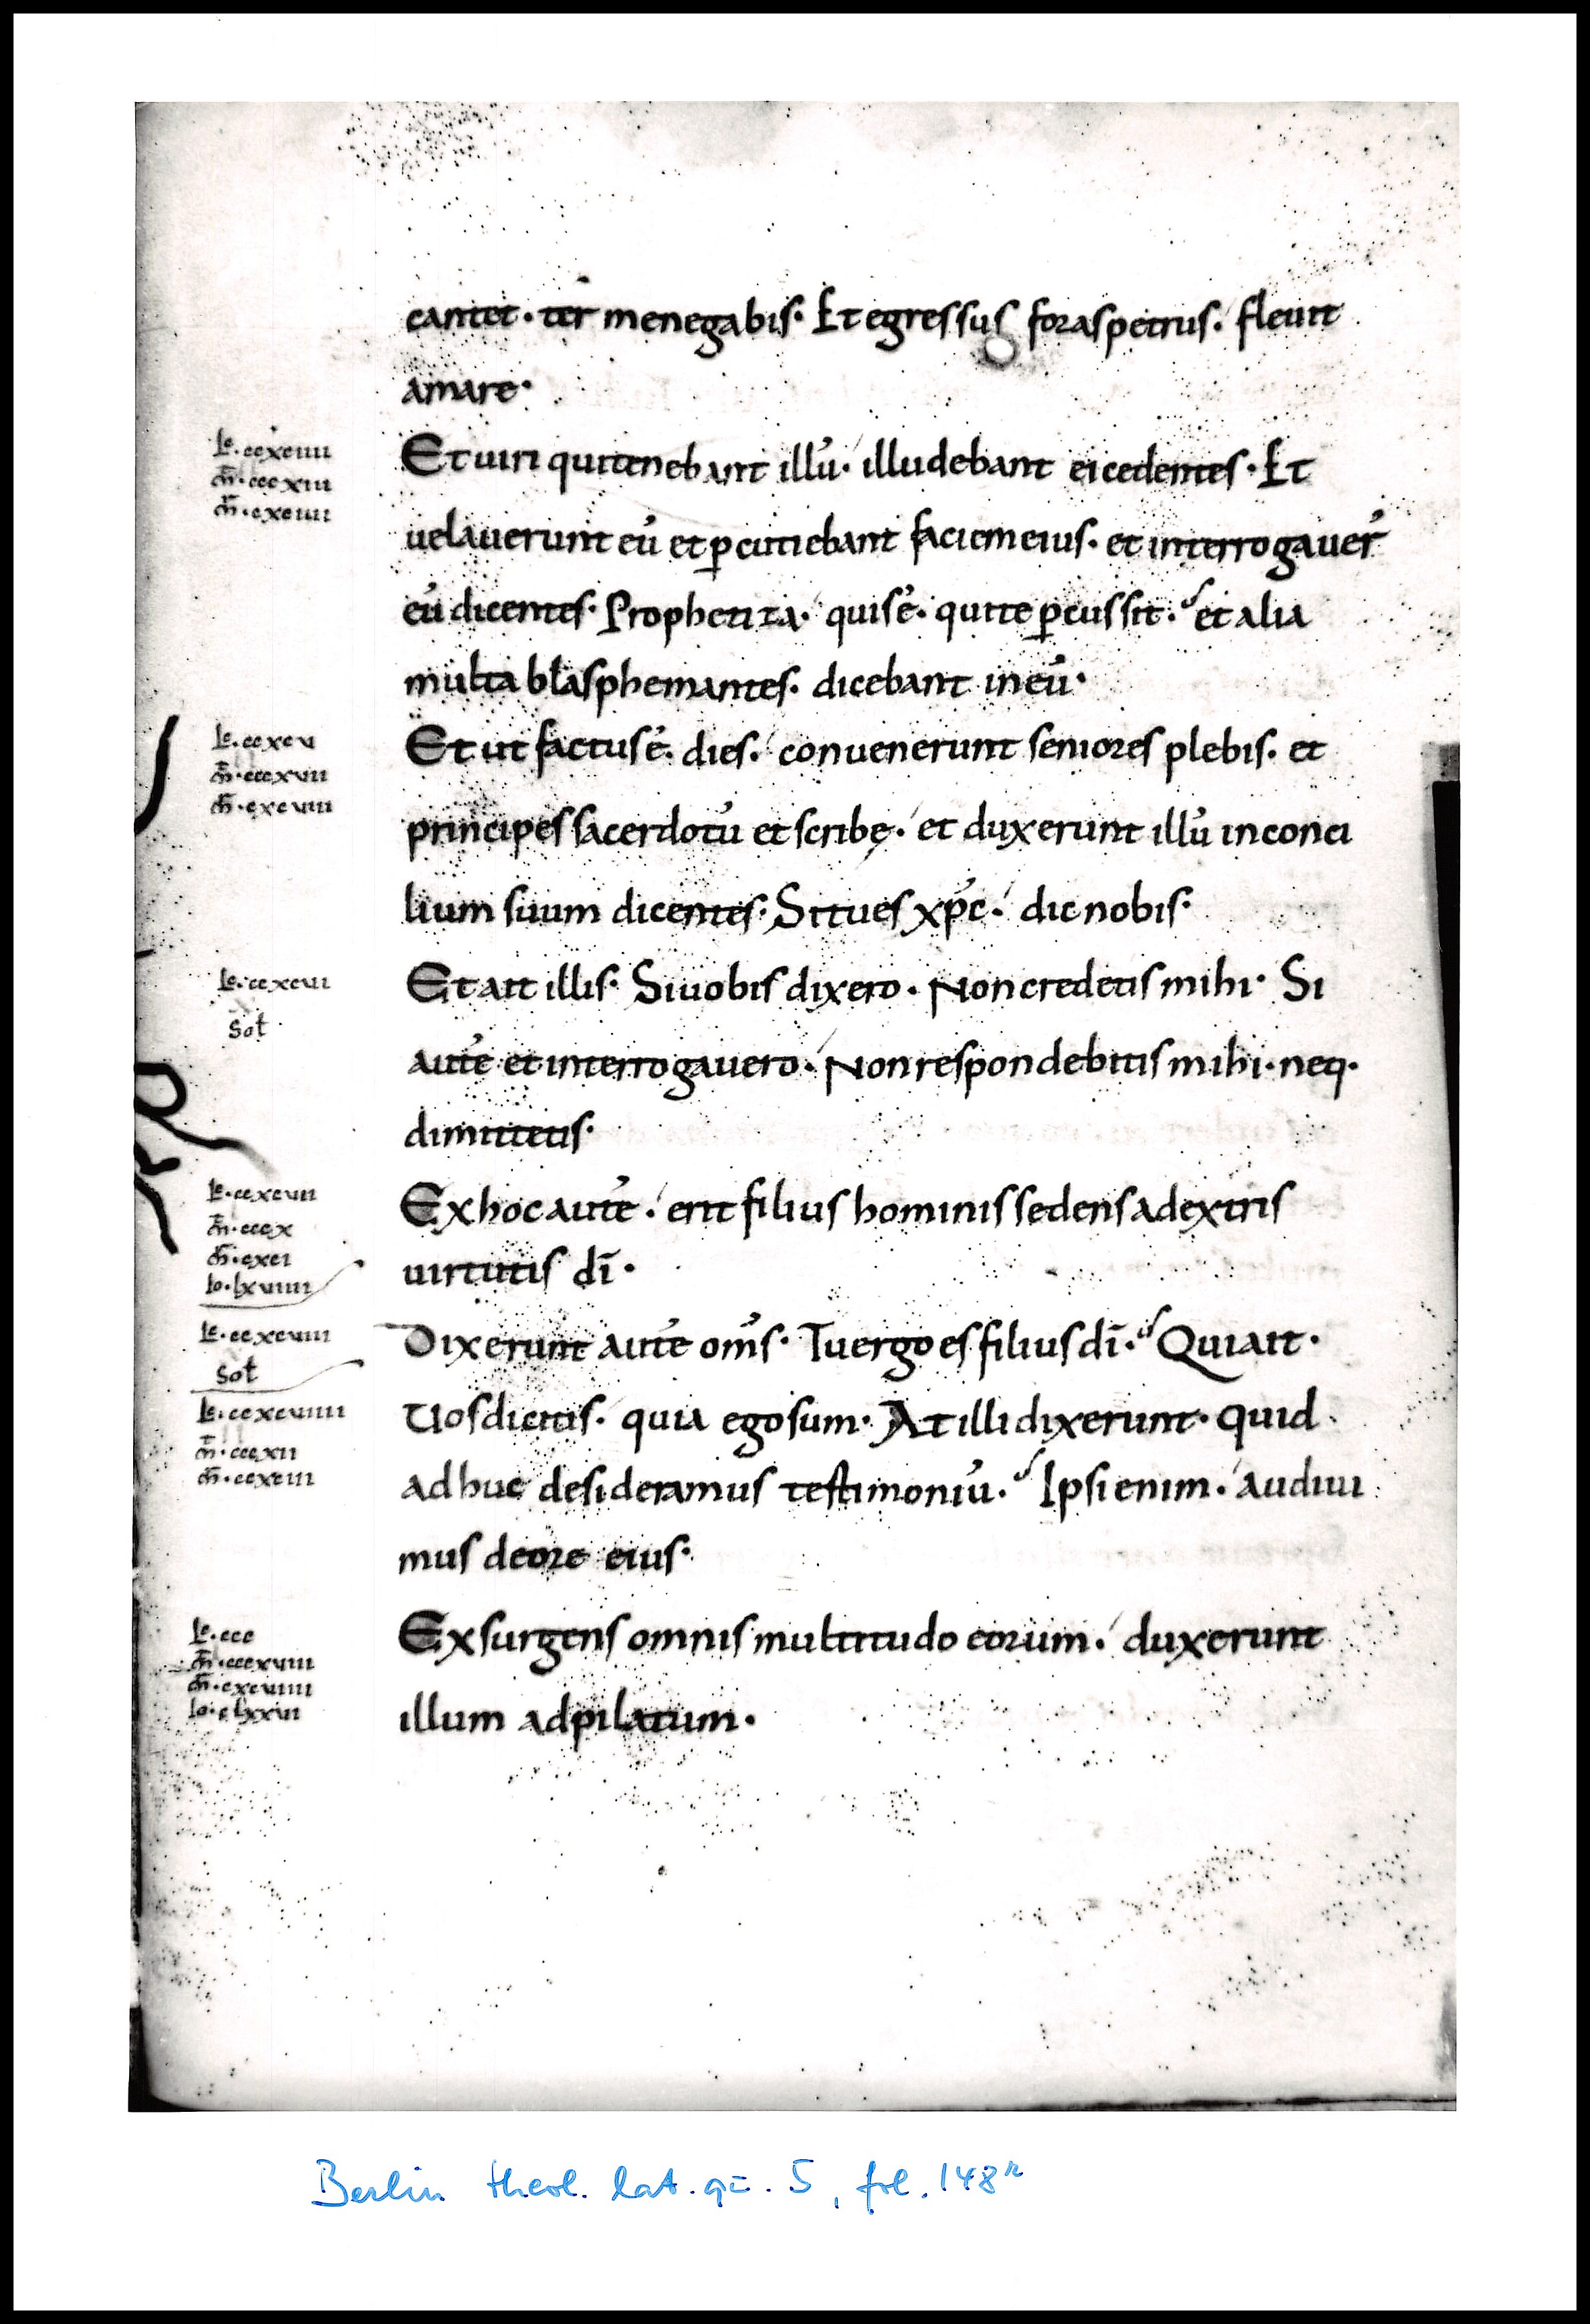 cantet · ter menegabis · Et egressus foras petrus · fleuit
amare ·
Lc · ccxciiii
Et uiri qui tenebant illū · illudebant ei cedentes · Et
uelauerunt eū et ꝑcutiebant faciem eius · et interrogauer̄
eū dicentes · Prophetiza · quis ē · qui te ꝑcussit · et alia
multa blasphemantes · dicebant in eū ·
Lc · ccxcv
m̄ · cccxvii
Et ut factus ē · dies · conuenerunt seniores plebis · et
principes sacerdotū et scribę · et duxerunt illū in conci
lium suum dicentes · Si tu es xp̄c · dic nobis ·
Lc · ccxcvi
Sol
Et ait illis · Si uobis dixero · Non credetis mihi · Si
autē et interrogauero · Non respondebitis mihi · neq·
dimittetis ·
Lc · ccxcvii
m̄ · cccx
m̄ · cxci
Io · lxviiii
Ex hoc autē · erit filius hominis sedens a dextris
uirtutis dī ·
Lc · ccxcviii
Sol
Dixerunt autē om̄s · Tu ergo es filius dī · Qui ait ·
Uos dicitis · quia ego sum · At illi dixerunt · quid
Lc · ccxcviiii
m̄ · cccxii
m̄ · ccxciii
adhuc desideramus testimoniū · Ipsi enim · audiui
mus de ore eius ·
Lc · ccc
m̄ · cccxviii
m̄ · cxcviiii
Io · clxxvi
Exsurgens omnis multitudo eorum · duxerunt
illum ad pilatum ·
Berlin theol. lat. q̄. 5, fol. 148ʳ